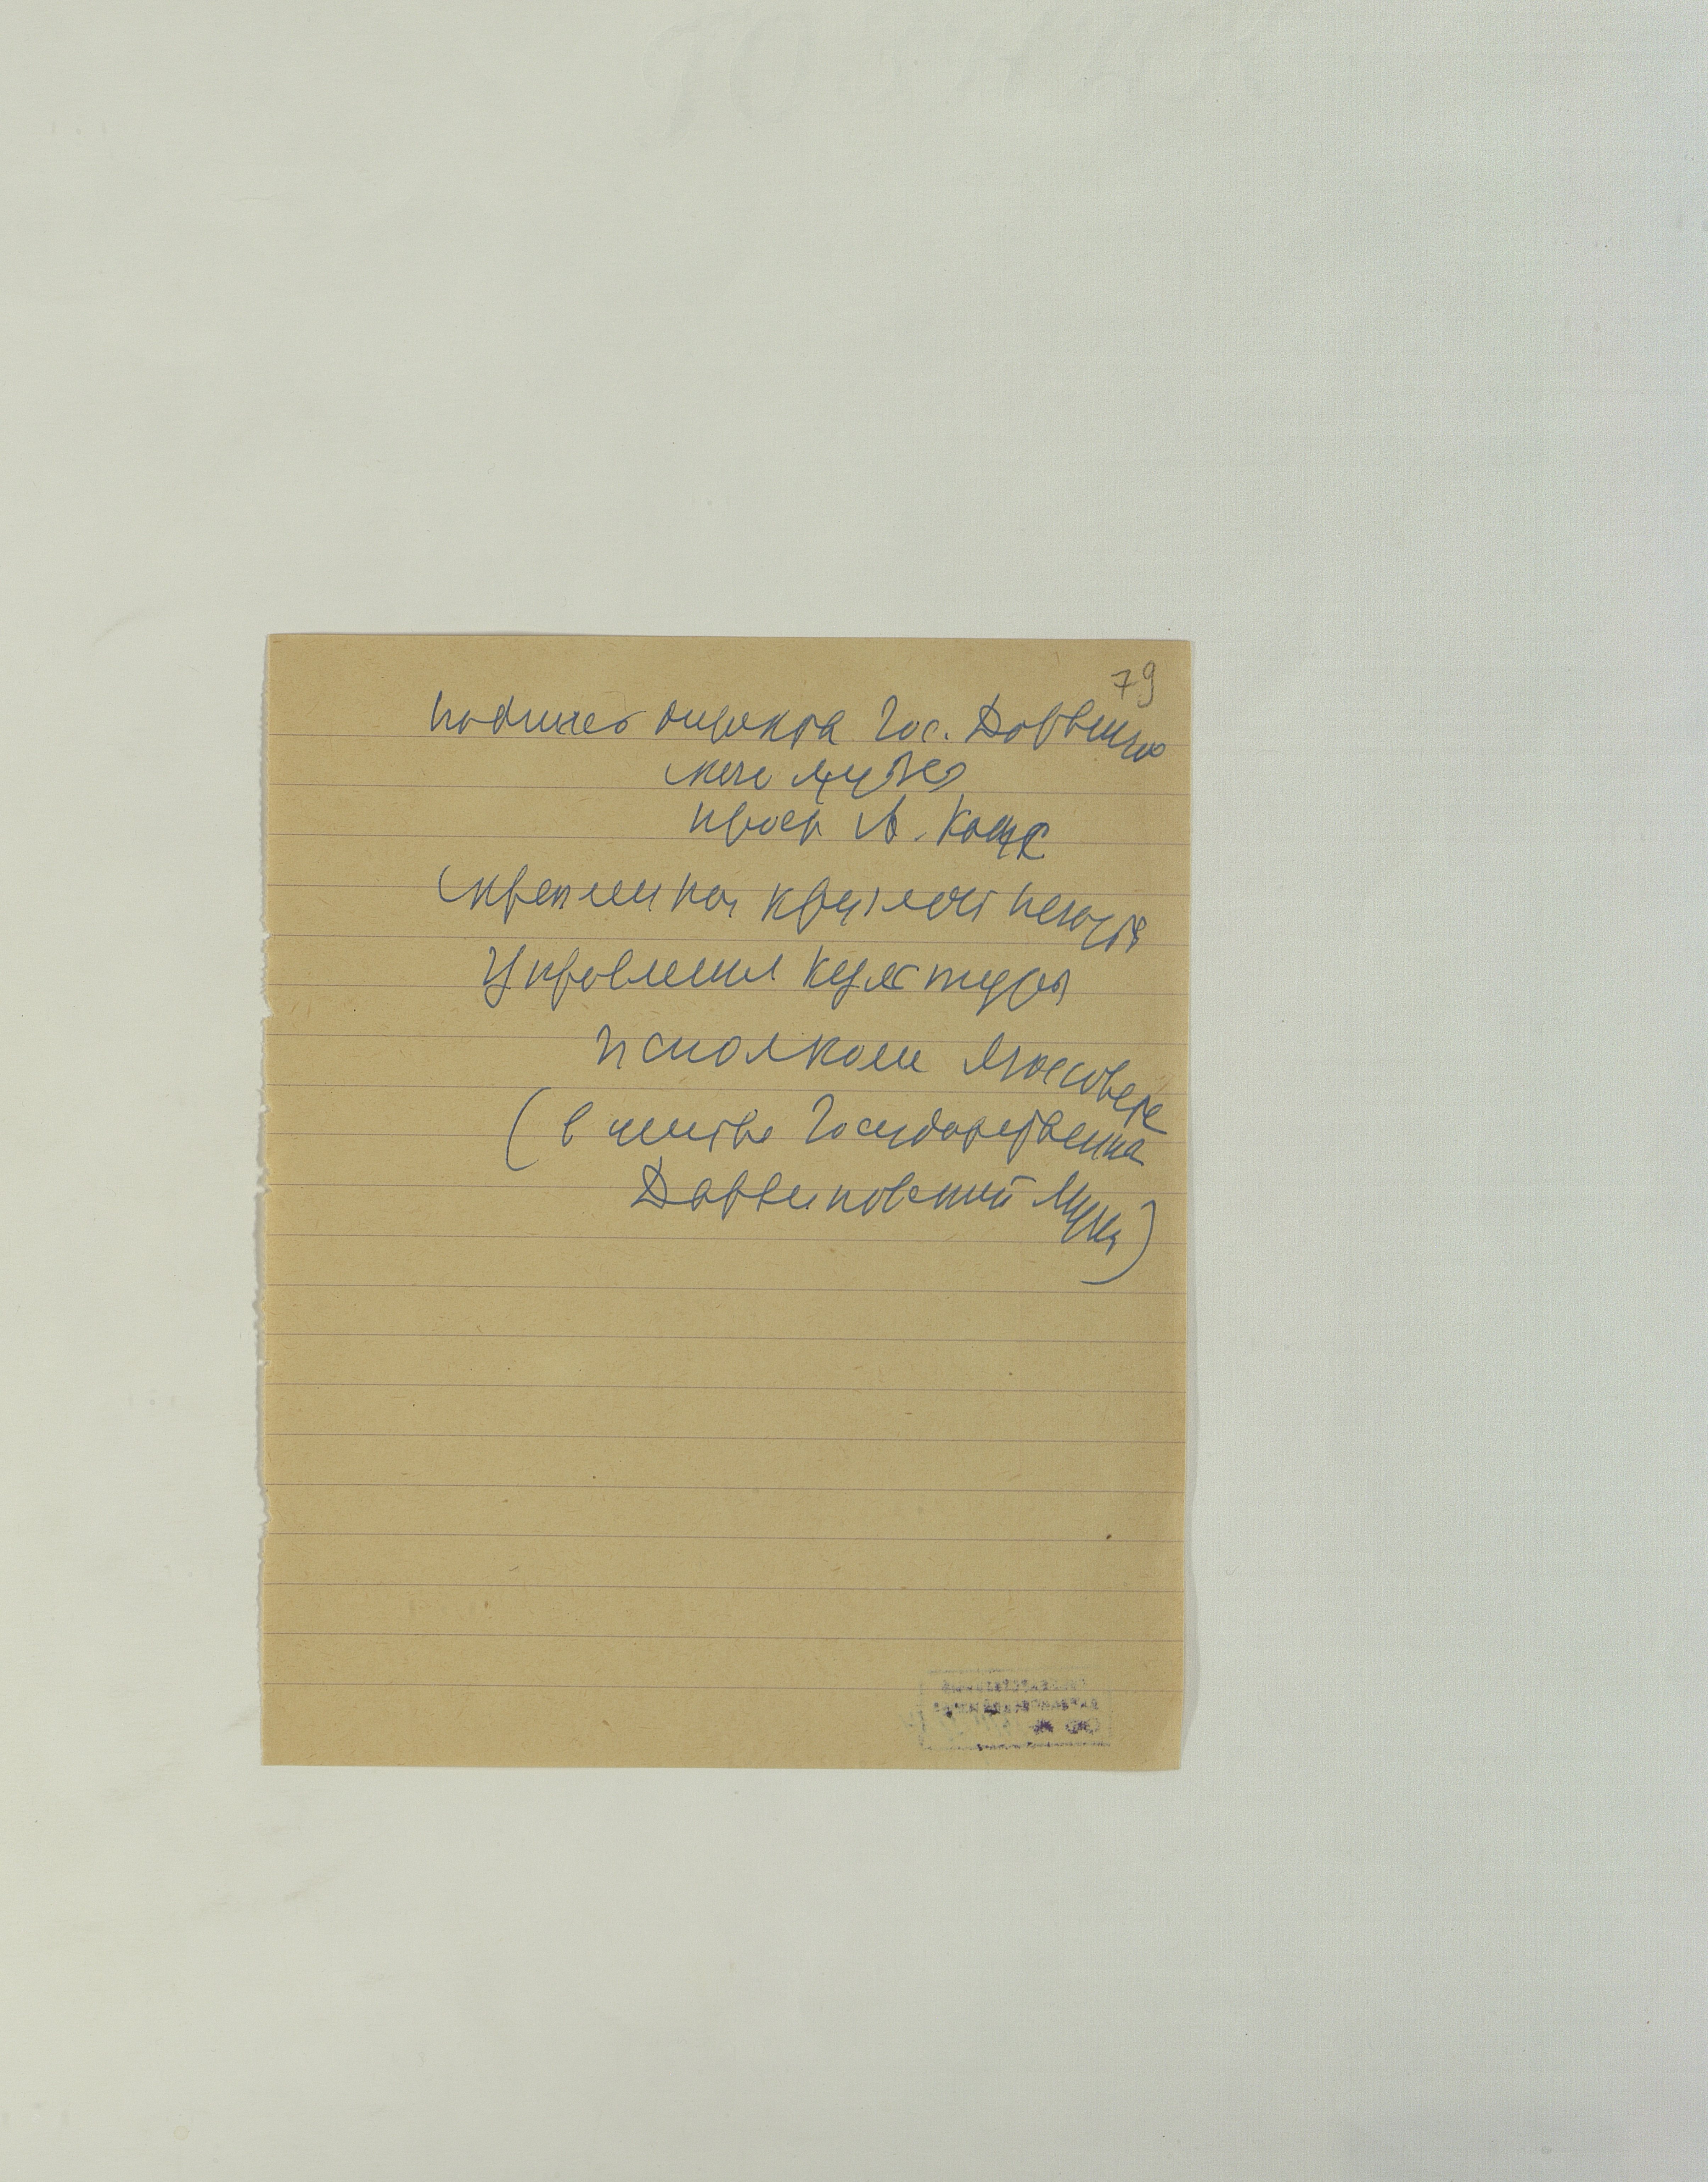 79
подписью директора Гос. Дарвинов
ского музея
проф А. Котс
скреплена круглой печатью
Управления культуры
Исполкома Моссовета
( в центре Государственный
Дарвиновский Музей )